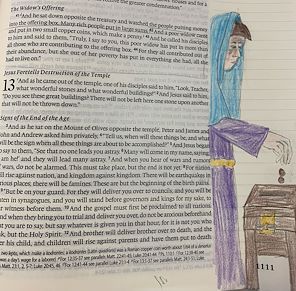 the greater condemnation."
The Widow's Offering
41 And he sat down opposite the treasury and watched the people putting money
into the offering box. Many rich people put in large sums. 42 And a poor widow came
and put in two small copper coins, which make a penny. 43 And he called his disciples
to him and said to them, "Truly, I say to you, this poor widow has put in more than
all those who are contributing to the offering box. 44 For they all contributed out of
their abundance, but she out of her poverty has put in everything she had, all she
had to live on."
Jesus Foretells Destruction of the Temple
13 And as he came out of the temple, one of his disciples said to him, "Look, Teacher,
what wonderful stones and what wonderful buildings!" 2 And Jesus said to him,
"Do you see these great buildings? There will not be left here one stone upon another
that will not be thrown down."
Signs of the End of the Age
3 And as he sat on the Mount of Olives opposite the temple, Peter and James and
John and Andrew asked him privately, 4 "Tell us, when will these things be, and what
will be the sign when all these things are about to be accomplished?" 5 And Jesus began
to say to them, "See that no one leads you astray. 6 Many will come in my name, saying,
am he!' and they will lead many astray. 7 And when you hear of wars and rumors
of wars, do not be alarmed. This must take place, but the end is not yet. 8 For nation
will rise against nation, and kingdom against kingdom. There will be earthquakes in
various places; there will be famines. These are but the beginning of the birth pains.
9 "But be on your guard. For they will deliver you over to councils, and you will be
beaten in synagogues, and you will stand before governors and kings for my sake, to
bear witness before them. 10 And the gospel must first be proclaimed to all nations.
11 And when they bring you to trial and deliver you over, do not be anxious beforehand
what you are to say, but say whatever is given you in that hour, for it is not you who
speak, but the Holy Spirit. 12 And brother will deliver brother over to death, and the
father his child, and children will rise against parents and have them put to death.